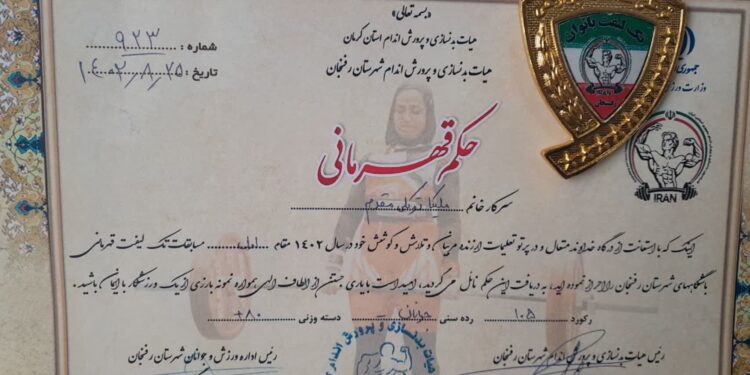 «بسمه تعالی»
هیات بدنسازی و پرورش اندام استان کرمان
هیات بدنسازی و پرورش اندام شهرستان رفسنجان
شماره : ۹۲۳
تاریخ : ۱۴۰۲/۸/۲۵
تک لیفت بانوان
رفسنجان
جمهوری
وزارت ورز
IRAN
حکم قهرمانی
سرکار خانم ملیکا توکلی مقدم
اینک که با استعانت از درگاه خداوند متعال و در پرتو تعلیمات ارزنده مربیان و تلاش و کوشش خود در سال ۱۴۰۲ مقام اول مسابقات تک لیفت قهرمانی
باشگاههای شهرستان رفسنجان را احراز نموده اید، به دریافت این حکم نائل می گردید، امید است با یاری جستن از الطاف الهی همواره نمونه بارزی از یک ورزشکار با ایمان باشید .
رکورد ۱۰۵ رده سنی جوانان دسته وزنی +۸۰
رئیس هیات بدنسازی و پرورش اندام شهرستان رفسنجان
هیات بدنسازی و پرورش اندام
رئیس اداره ورزش و جوانان شهرستان رفسنجان